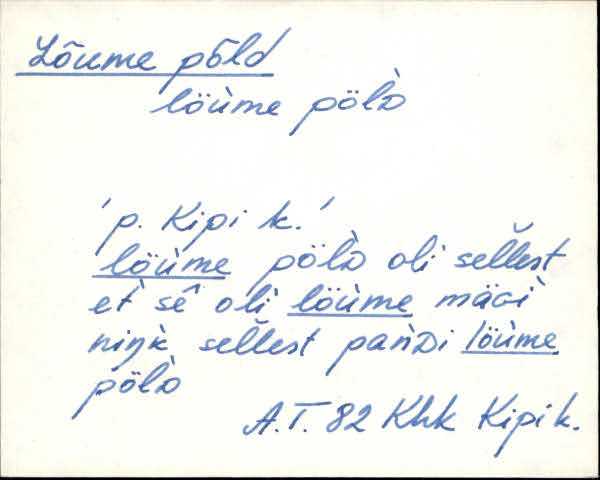 Lõume põld
löùme pölD̀
'p. Kipi k.'
löùme pölD̀ oli sellest
et̀ sê oli löùme mäGi
niŋk̀ sellest pańDi löùme
pölD̀
A.T. 82 Khk Kipi k.